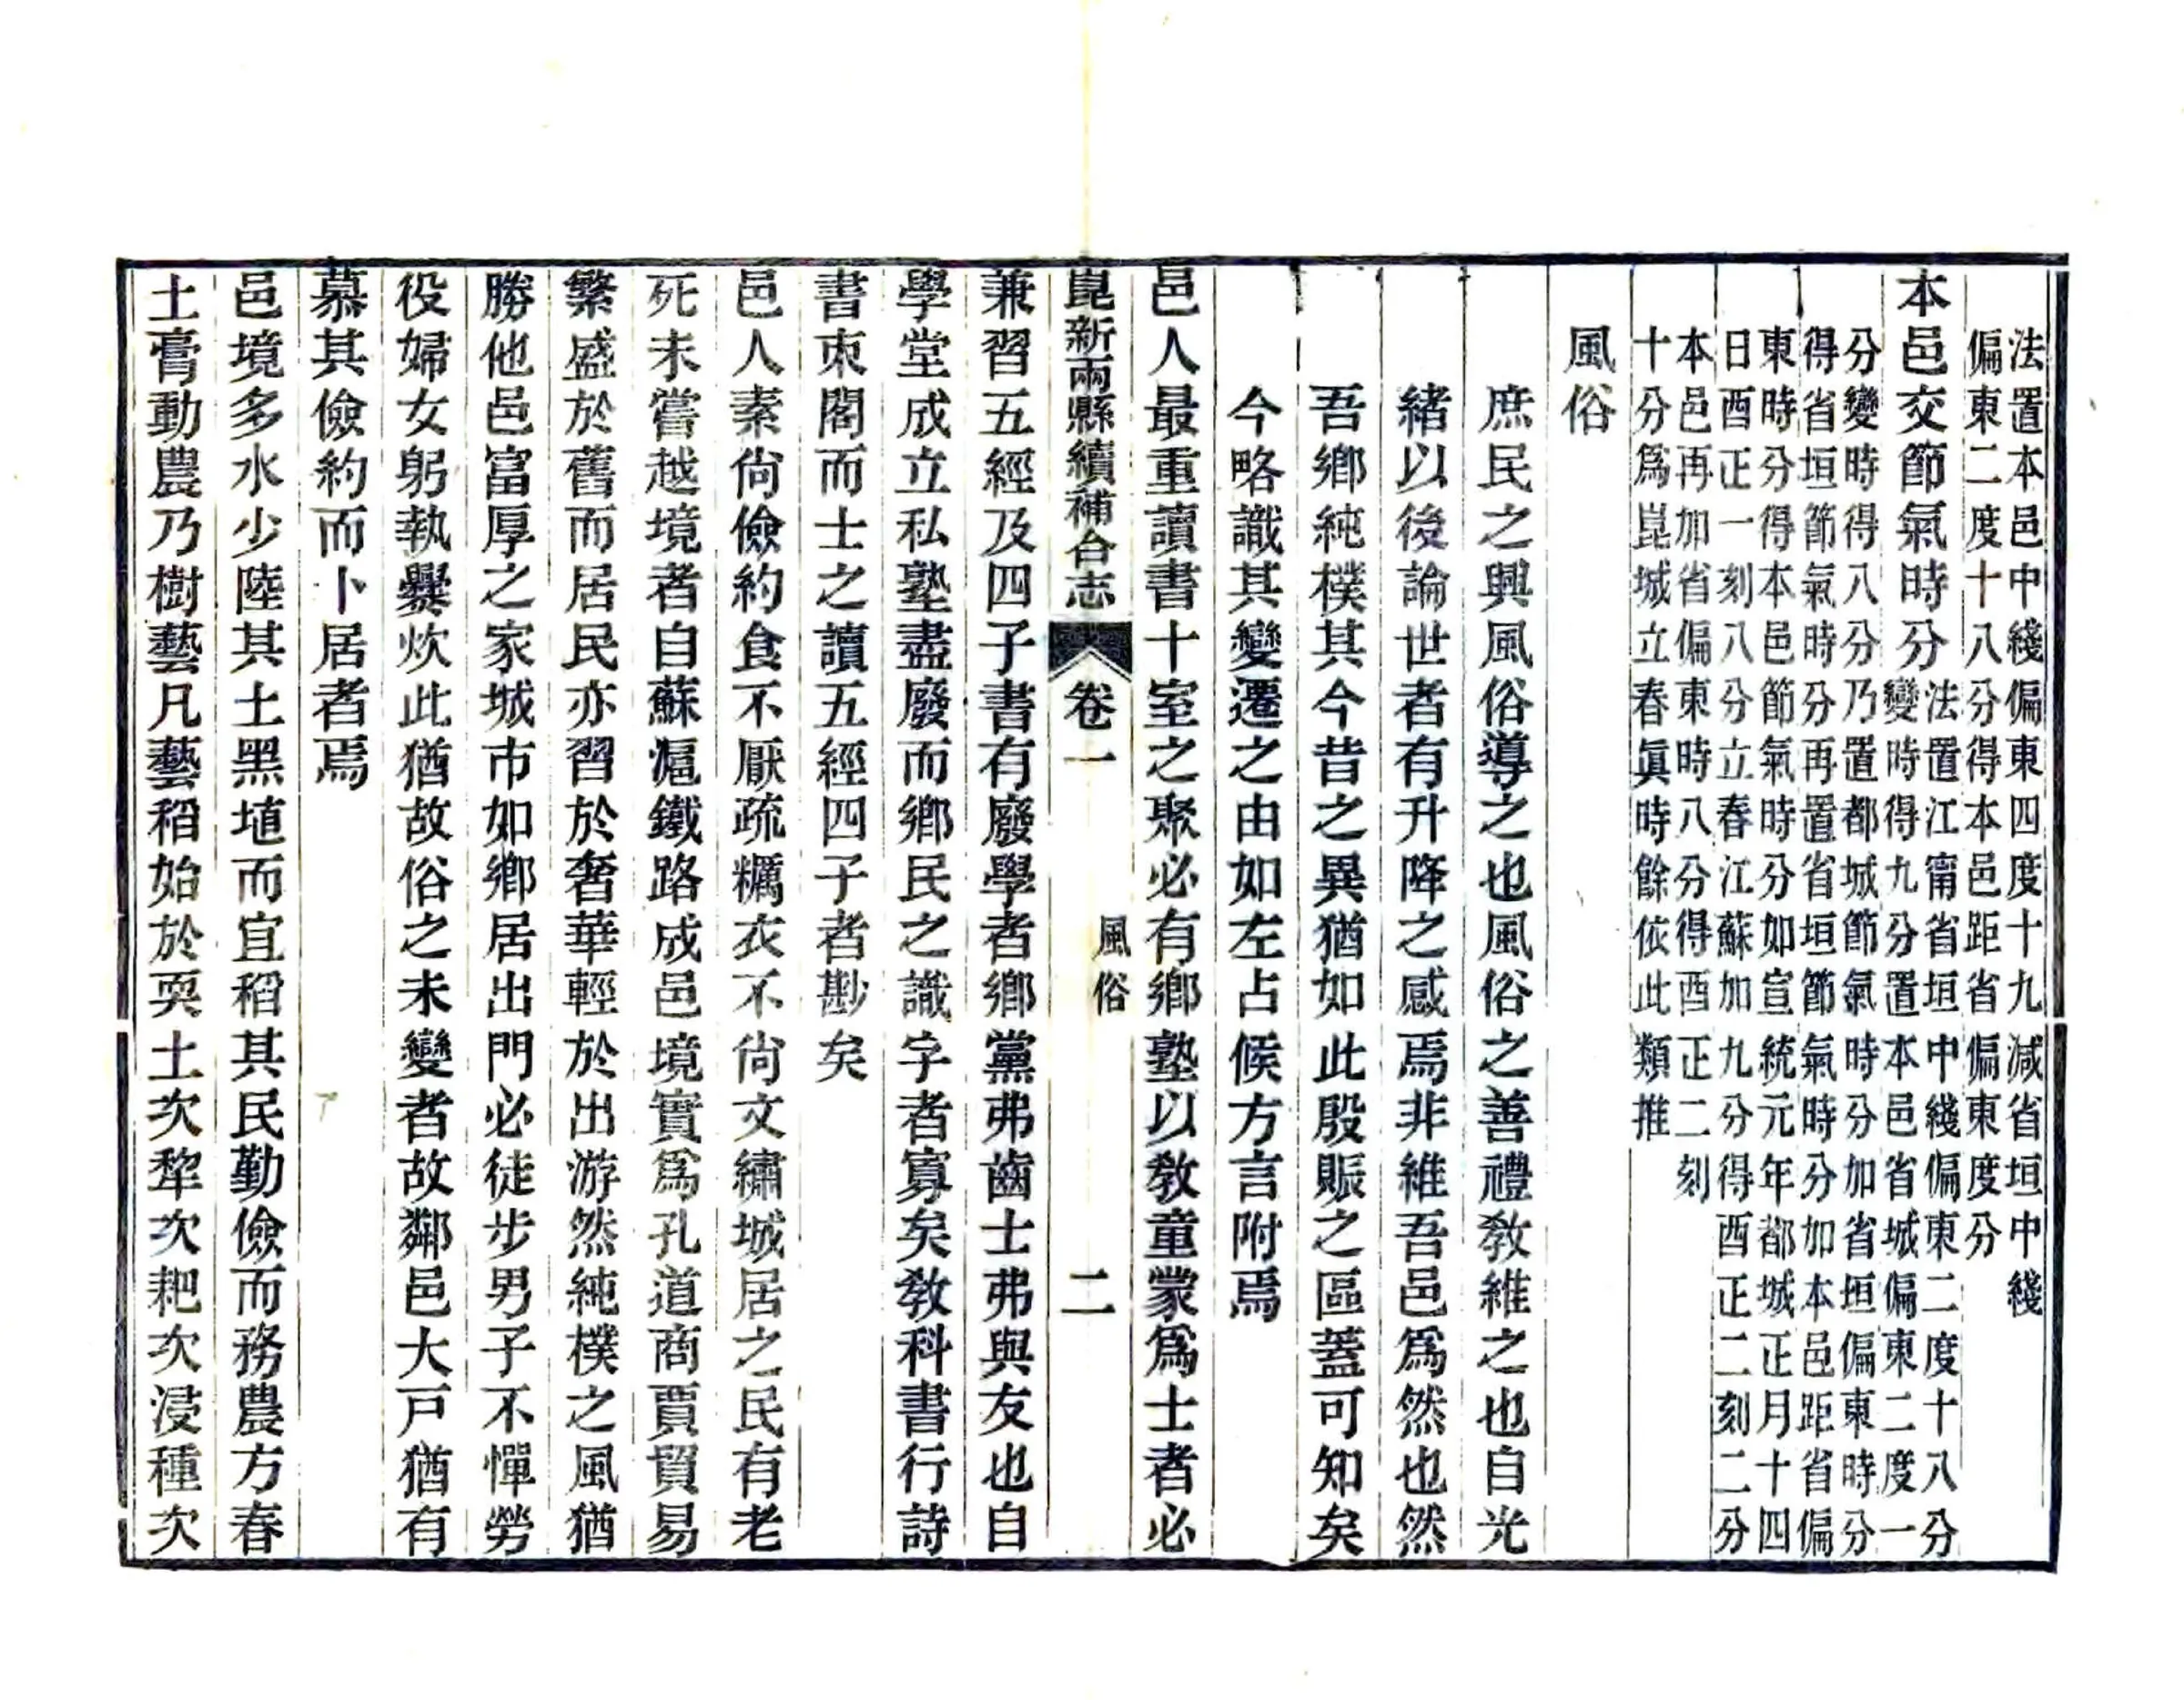 法置本邑中綫偏東四度十九減省垣中綫
偏東二度十八分得本邑距省偏東度分
本邑交節氣時分
法置江甯省垣中綫偏東二度十八分
變時得九分置本邑省城偏東二度一
分變時得八分乃置都城節氣時分加省垣偏東時分
得省垣節氣時分再置省垣節氣時分加本邑距省偏
東時分得本邑節氣時分如宣統元年都城正月十四
日酉正一刻八分立春江蘇加九分得酉正二刻二分
本邑再加省偏東時八分得酉正二刻
十分爲崑城立春眞時餘依此類推
風俗
庶民之興風俗導之也風俗之善禮教維之也自光
緒以後論世者有升降之感焉非維吾邑爲然也然
吾鄉純樸其今昔之異猶如此殷賑之區蓋可知矣
今略識其變遷之由如左占候方言附焉
邑人最重讀書十室之聚必有鄉塾以教童蒙爲士者必
崑新兩縣續補合志 卷一 風俗 二
兼習五經及四子書有廢學者鄉黨弗齒士弗與友也自
學堂成立私塾盡廢而鄉民之識字者寡矣教科書行詩
書束閣而士之讀五經四子者尠矣
邑人素尙儉約食不厭疏糲衣不尙文繡城居之民有老
死未嘗越境者自蘇滬鐵路成邑境實爲孔道商賈貿易
繁盛於舊而居民亦習於奢華輕於出游然純樸之風猶
勝他邑富厚之家城市如鄉居出門必徒步男子不憚勞
役婦女躬執爨炊此猶故俗之未變者故鄰邑大戸猶有
慕其儉約而卜居者焉
邑境多水少陸其土黑埴而宜稻其民勤儉而務農方春
土膏動農乃樹藝凡藝稻始於耎土次犂次耙次浸種次